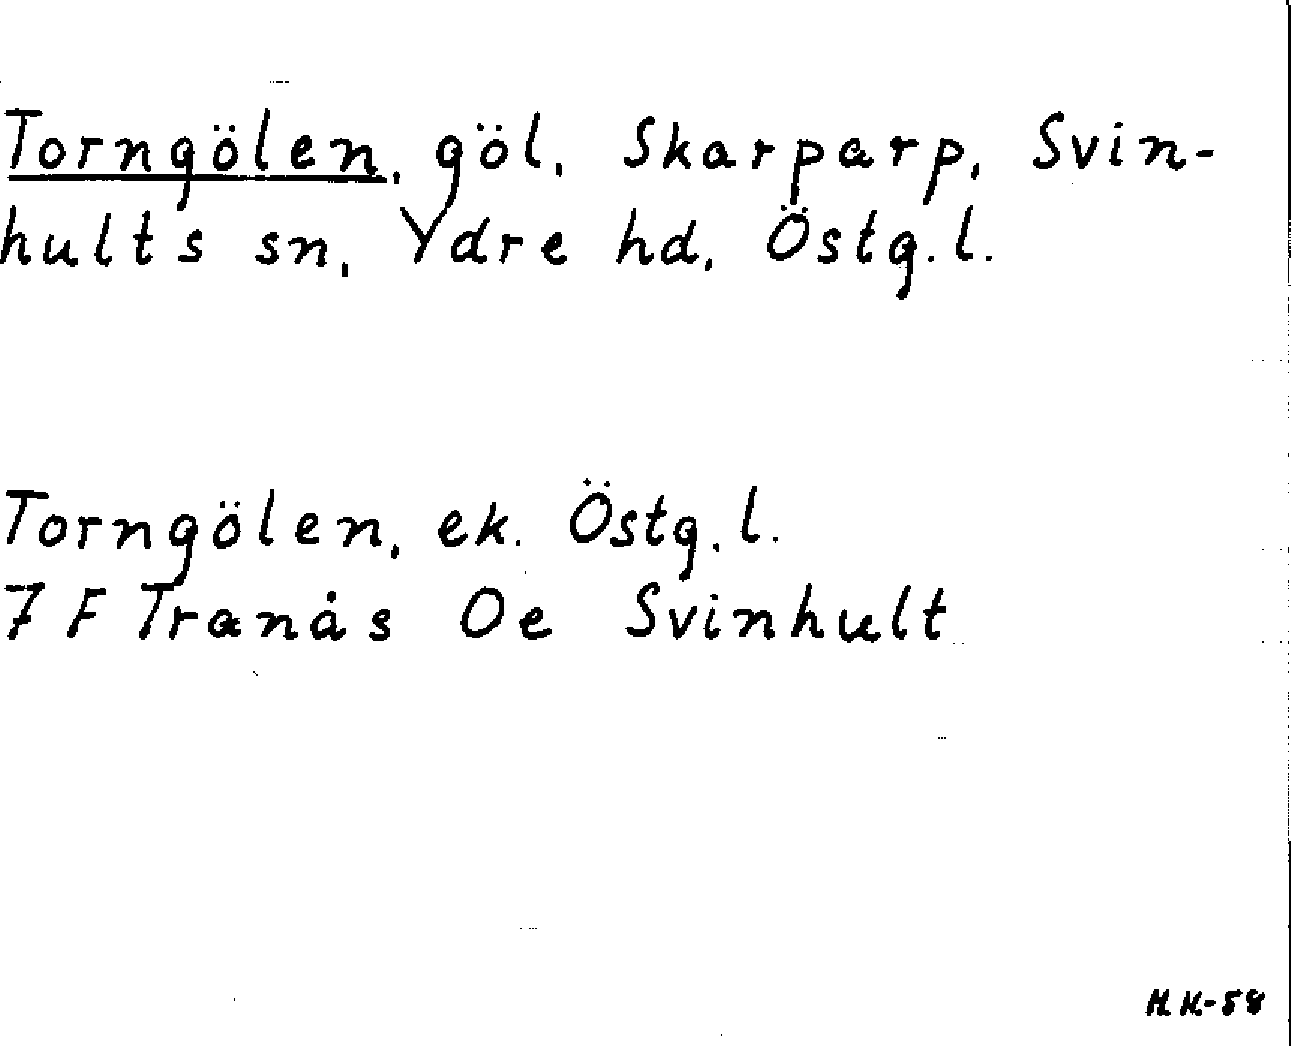 Torngölen, göl, Skarparp, Svin-
hults sn, Ydre hd, Östg. l.
Torngölen, ek. Östg. l.
7 F Tranås Oe Svinhult